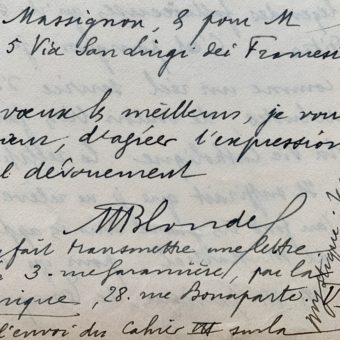 Massignon, & pour M
5 Via San Luigi dei Francesi
vœux les meilleurs, je vou
d'agréer l'expression
dévouement
MBlondel
fait transmettre une lettre
3. rue Garancière, par la
nique, 28. rue Bonaparte.
l'envoi du Cahier III sur la
mystique